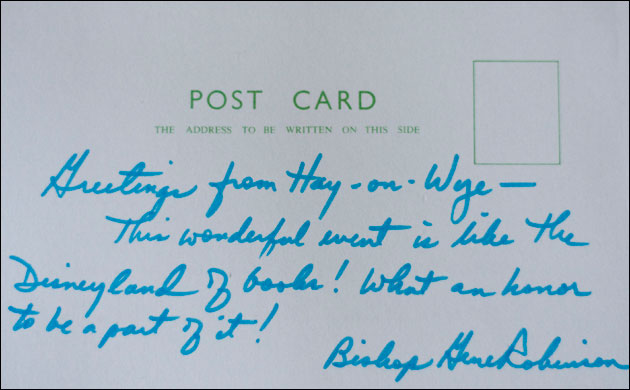 POST CARD
THE ADDRESS TO BE WRITTEN ON THIS SIDE
Greetings from Hay-on-Wye —
This wonderful event is like the
Disneyland of books! What an honor
to be a part of it!
Bishop Gene Robinson